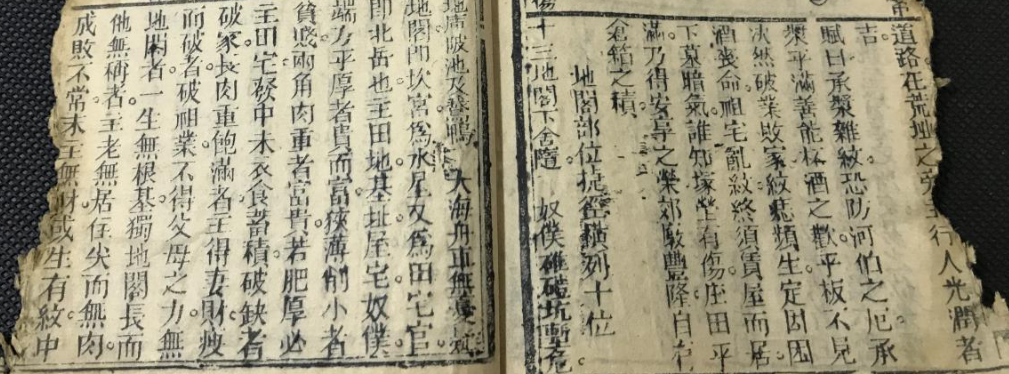 道路在荒坵之旁主行人光潤者
吉
賦曰承漿雜紋恐防河伯之厄承
漿平滿善能杯酒之歡平板不見
決然破業敗家紋痣頻生定因困
酒喪命祖宅亂紋終須賃屋而居
下墓暗氣誰知塚塋有傷庄田平
滿乃得安享之榮郊敞豐隆自有
倉箱之積
地閣部位捷徑橫列十位
十三地閣下舍隨 奴僕碓磑坑塹危
地庫陂池及鵞鴨 大海舟車無憂
地閣即坎宮為水星又為田宅宮
即北岳也主田地基址屋宅奴僕
端方平厚者貴而富狹薄削小者
貧惑兩角肉重者富貴若肥厚必
主田宅發中末衣食蓄積破缺者
破家長肉重飽滿者主得妻財疲
而破者破祖業不得父母之力無
地閣者一生無根基獨地閣長而
他無稱者主老無居住尖而無肉
成敗不常末主無財或生有紋中